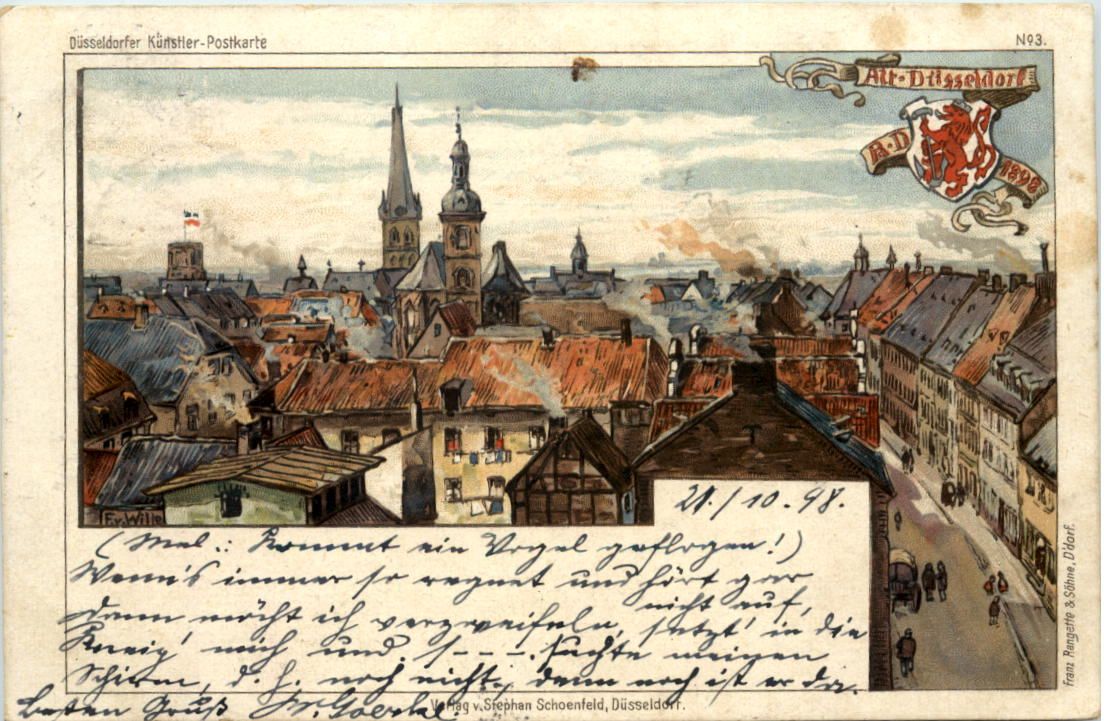 Düsseldorfer Künstler-Postkarte
No 3.
Alt-Düsseldorf
A·D 1898
F.v.Wille
21./10.98.
(Mel.: Kommt ein Vogel geflogen!)
Wenn's immer so regnet und hört gar
nicht auf,
Dann möcht ich verzweifeln, setzt' in die
Kneip' mich und s---. suchte meinen
Schirm, d. h. noch nicht, denn noch ist er da.
Besten Gruß
Verlag v. Stephan Schoenfeld, Düsseldorf.
Franz Rangette & Söhne, D'dorf.